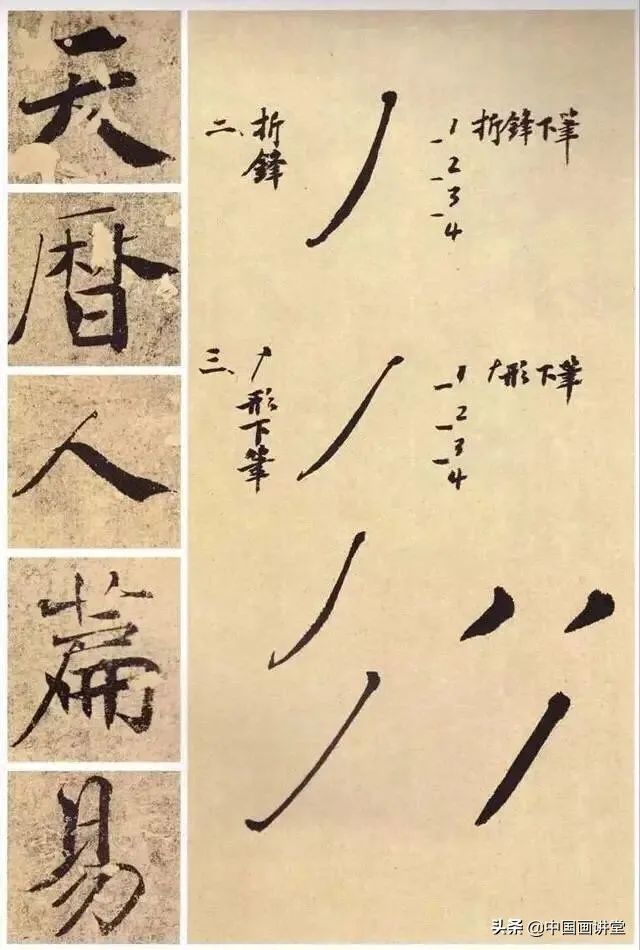 天
暦
人
篇
易
二、折鋒
1 折鋒下筆
2
3
4
三、形下筆
1 形下筆
2
3
4
头条 @中国画讲堂